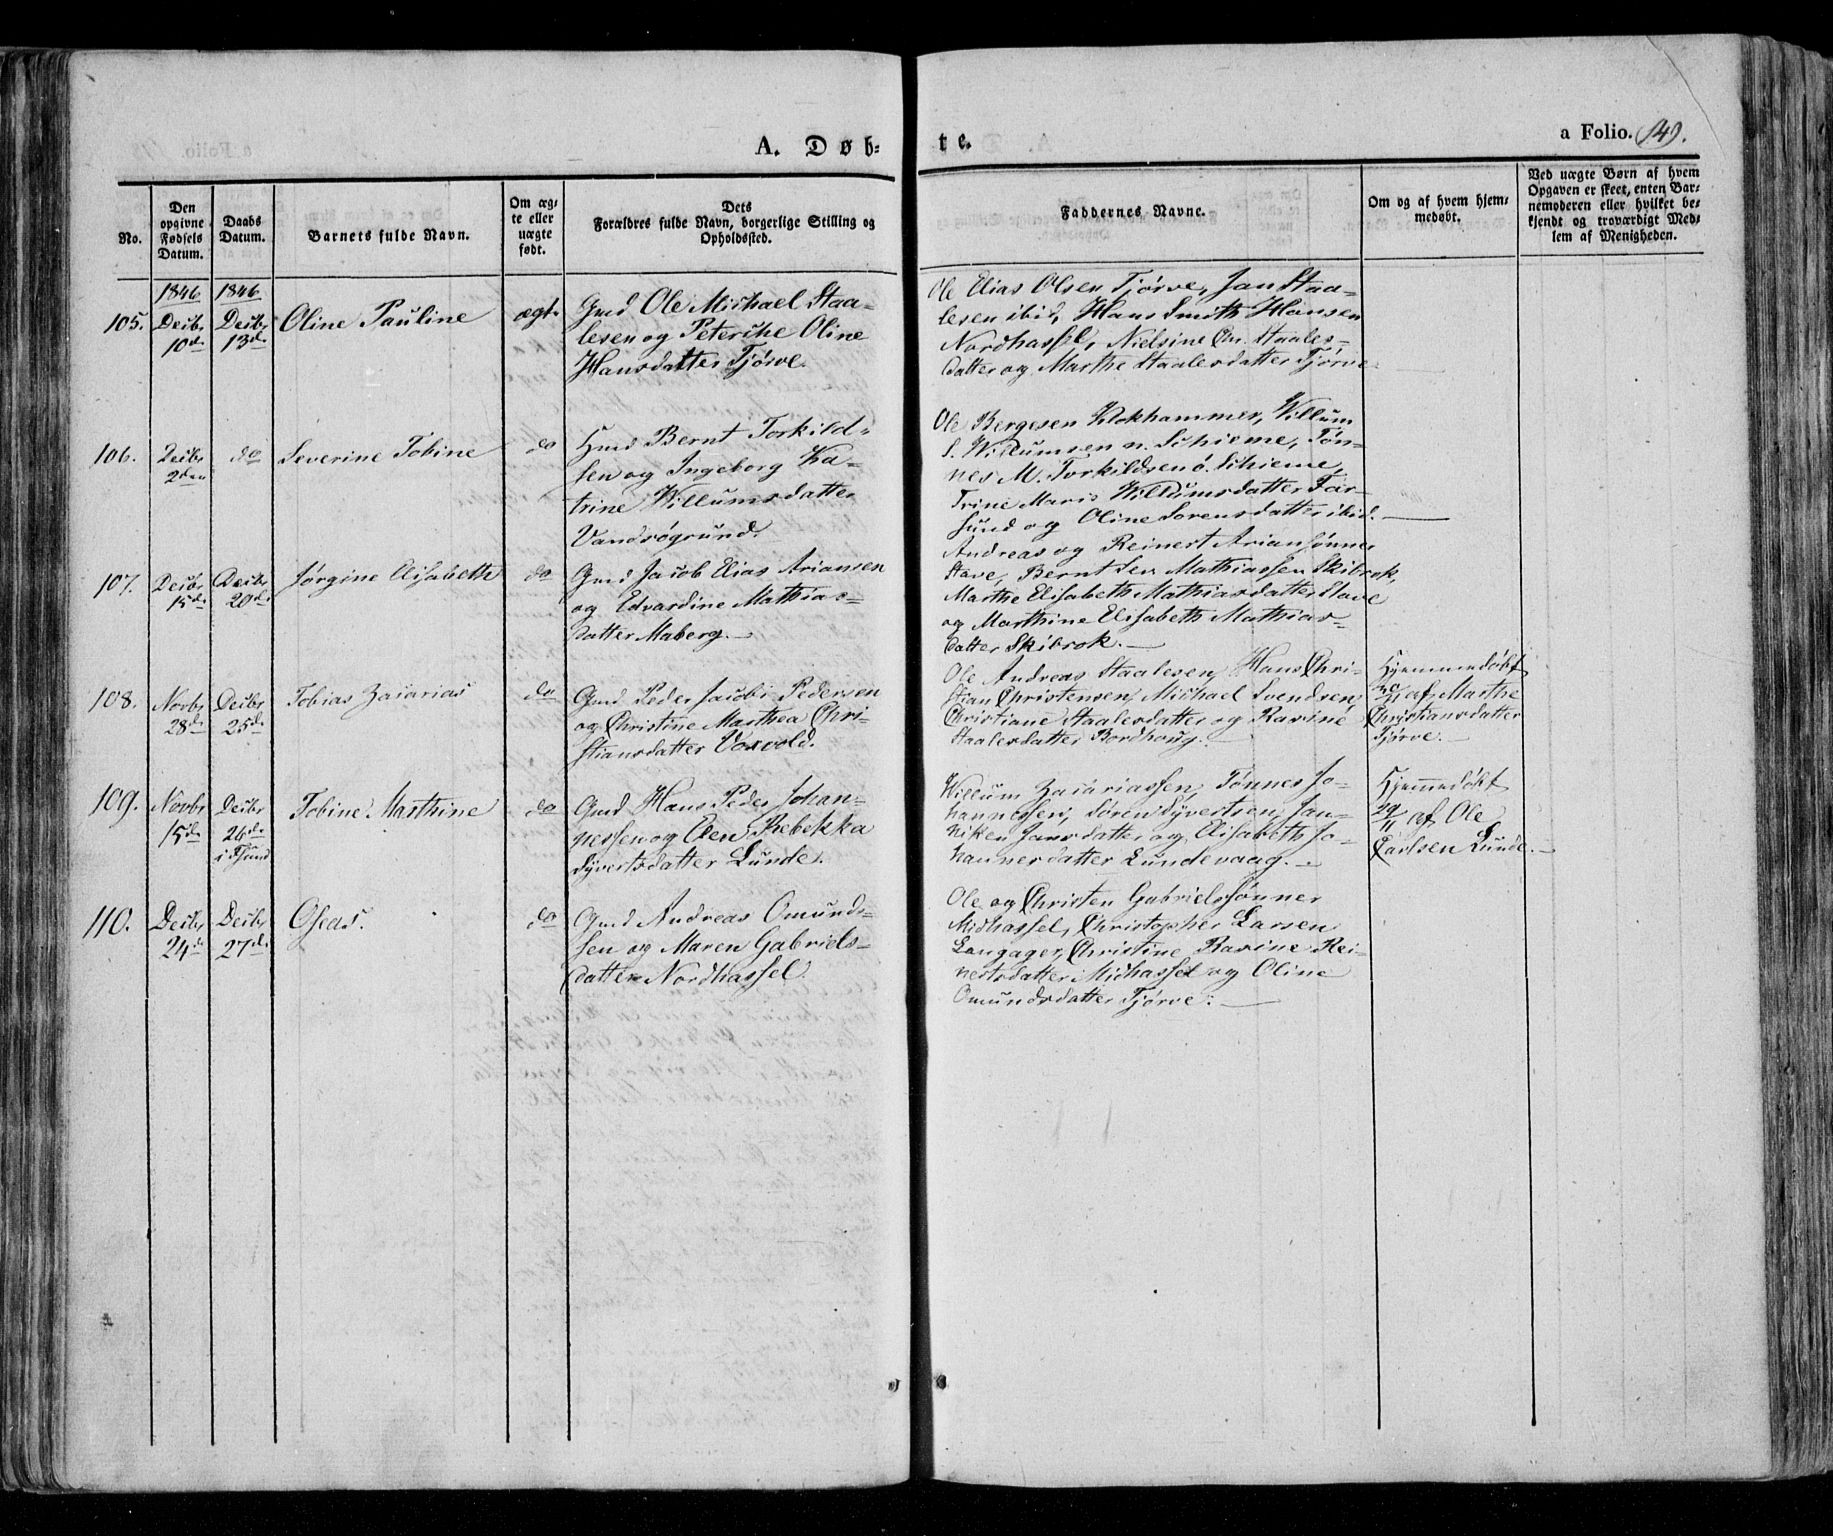 A. Døb-
te.
a Folio. 149.
No.
Den
opgivne
Fødsels
Datum.
Daabs
Datum.
Barnets fulde Navn.
Om æg-
te eller
uægte
født.
Dets
Forældres fulde Navn, borgerlige Stilling og
Opholdssted.
Faddernes Navne.
Om og af hvem hjem-
medøbt.
Ved uægte Børn af hvem
Opgaven er skeet, enten Bar-
nemoderen eller hvilket be-
kjendt og troværdigt Med-
lem af Menigheden.
105.
1846
Decbr
10de
1846
Decbr
13de
Oline Pauline
ægte
Gmd Ole Michael Staa-
lesen og Peterche Oline
Hansdatter Tjørve.
Ole Elias Olsen Tjørve, Jan Staa-
lesen ibid, Hans Smith Hansen
Nordhassel, Nielsine Chr. Staales-
datter og Marthe Staalesdatter Tjørve.
106.
Decbr
2den
do
Severine Tobine
do
Hmd Bernt Torkild-
sen og Ingeborg Ka-
trine Willumsdatter
Vandsøgrund.
Ole Bergesen Klokhammer, Willum
S. Willumsen n. Schieme, Tøn-
nes M. Torkildsen ø. Schieme,
Trine Marie Willumsdatter Far-
sund og Oline Sorensdatter ibid.
107.
Decbr
15de
Decbr
20de
Jørgine Elisabeth
do
Gmd Jacob Elias Ariansen
og Edvardine Mathias-
datter Maberg.
Andreas og Reinert Ariansønner
Stave, Bernt Mathiassen Skibrok,
Marthe Elisabeth Mathiasdatter Stave
og Marthine Elisabeth Mathias-
datter Skibrok.
108.
Novbr
28de
Decbr
25de
Tobias Zacarias
do
Gmd Peder Jacobs Pedersen
og Christine Marthea Chri-
stiansdatter Voxvold.
Ole Andreas Staalesen, Hans Chri-
stian Christensen, Michael Svendsen,
Christiane Staalesdatter og Ravine
Staalesdatter Bordhoug.
Hjemmedøbt
af Marthe
Christiansdatter
Tjørve.
109.
Novbr
15de
Decbr
26de
i Fsund
Tobine Marthine
do
Gmd Hans Peder Johan-
nessen og Elen Rebekka
Syvertsdatter Lunde.
Willum Zacariassen, Tønnes Jo-
hannessen, Søren Syvertsen, Jan-
niken Jansdatter og Elisabeth Jo-
hannesdatter Lundevaag.
Hjemmedøbt
29/11 af Ole
Carlsen Lunde.
110.
Decbr
24de
Decbr
27de
Oseas.
do
Gmd Andreas Omunds-
sen og Maren Gabriels-
datter Nordhassel.
Ole og Christen Gabrielssønner
Midhassel, Christopher Larsen
Langager, Christine Ravine Rei-
nertsdatter Midhassel og Oline
Omundsdatter Tjørve.